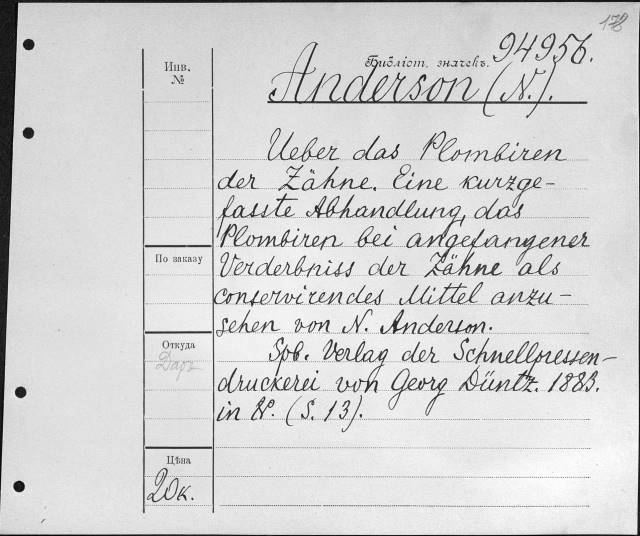 178
Инв.
№
Библіот. значекъ. 94956.
Anderson (N.).
Ueber das Plombiren
der Zähne. Eine kurzge-
fasste Abhandlung, das
Plombiren bei angefangener
По заказу
Verderbniss der Zähne als
conservirendes Mittel anzu-
sehen von N. Anderson.
Откуда
Даръ
Spb. Verlag der Schnellpressen-
druckerei von Georg Düntz. 1883.
in 16°. (S. 13).
Цѣна
20к.